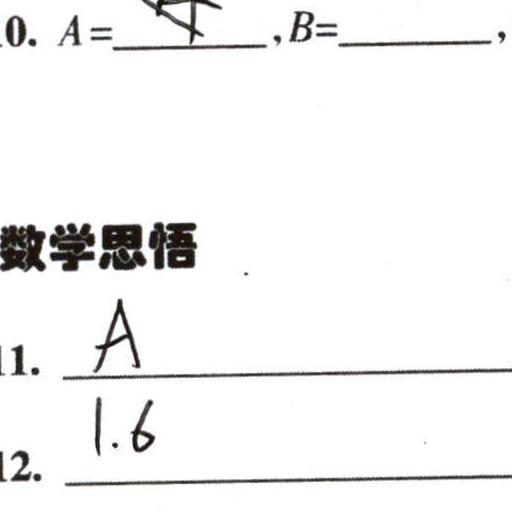 0. A=____, B=____,
数学思悟
11. A
12. 1.6